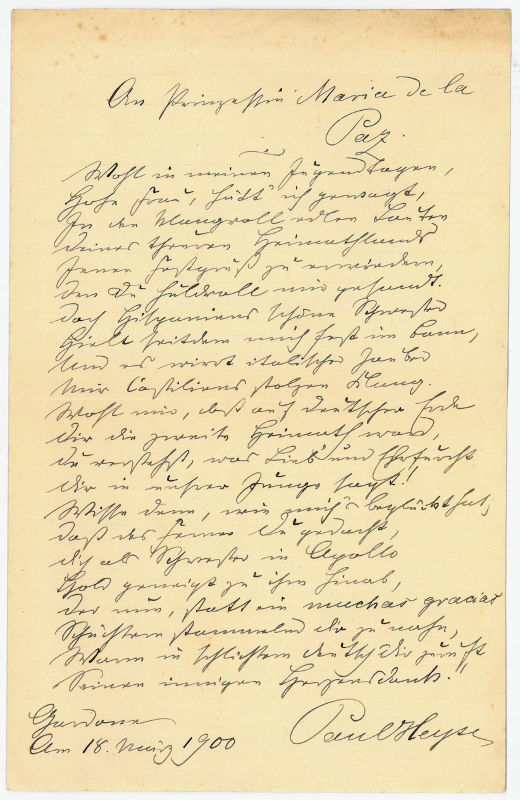 An Prinzessin Maria de la
Paz.
Wohl in meinen Jugendtagen,
Hohe Frau, hätt' ich gewagt,
In den klangvoll edlen Lauten
Deines theuren Heimathlands
Jenen Festgruß zu erwiedern,
Den Du huldvoll mir gesandt.
Doch Hispaniens schöne Schwester
Hielt seitdem mich fest im Bann,
Und es wirrt italischer Zauber
Mir Castiliens stolzen Klang.
Wohl mir, daß auf deutscher Erde
Dir die zweite Heimath ward,
Du verstehst, was Lieb' und Ehrfurcht
Dir in unsrer Zunge sagt!
Wisse denn, wie mich's beglückt hat,
Daß des Fernen Du gedacht,
Dich als Schwester in Apollo
Hold geneigt zu ihm hinab,
Der nun, statt ein muchas gracias
Schüchtern stammelnd Dir zu nahn,
Warm in schlichtem Deutsch Dir zuruft
Seinen innigen Herzensdank!
Gardone
Am 18. März 1900
Paul Heyse